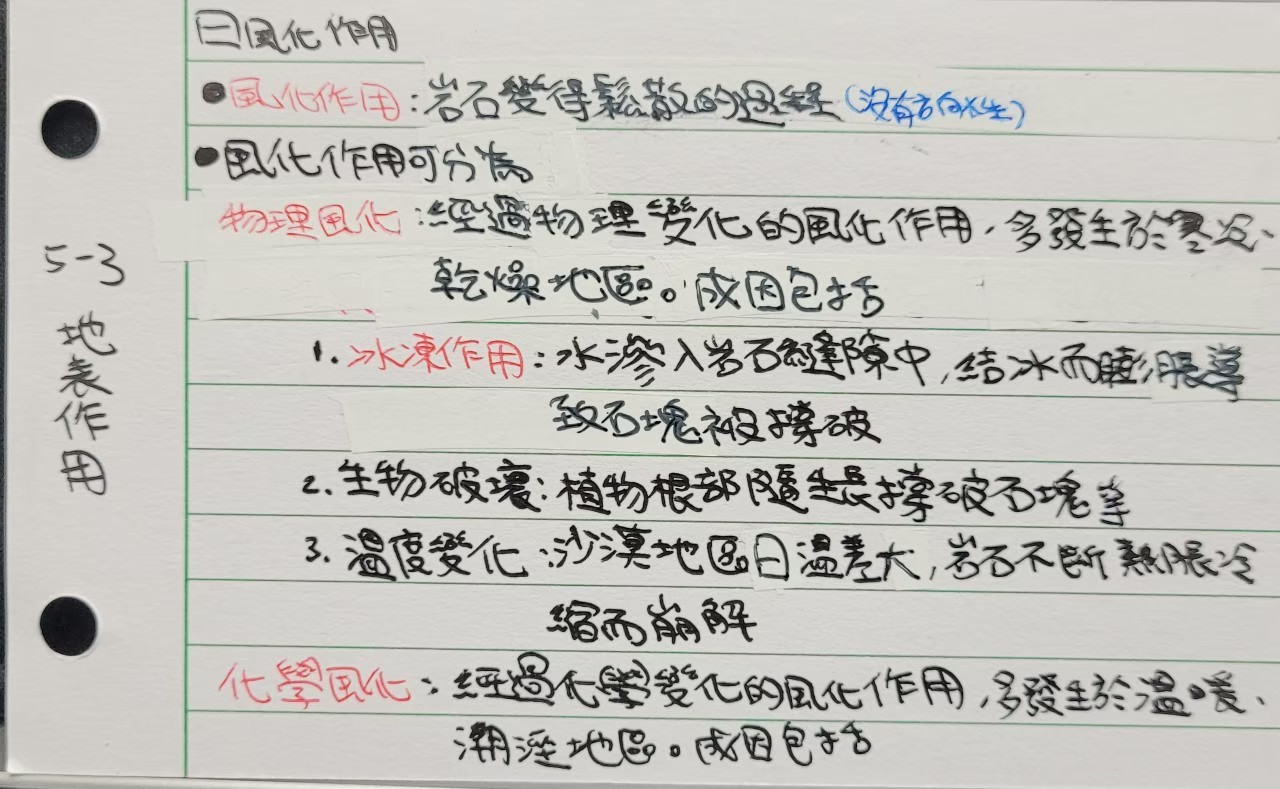 5-3 地表作用
㊀風化作用
●風化作用:岩石變得鬆散的過程(沒有方向性)
●風化作用可分為
物理風化:經過物理變化的風化作用,多發生於寒冷、
乾燥地區。成因包括
1.冰凍作用:水滲入岩石縫隙中,結冰而膨脹導
致石塊被撐破
2.生物破壞:植物根部隨生長撐破石塊等
3.溫度變化:沙漠地區日溫差大,岩石不斷熱脹冷
縮而崩解
化學風化:經過化學變化的風化作用,多發生於溫暖、
潮溼地區。成因包括